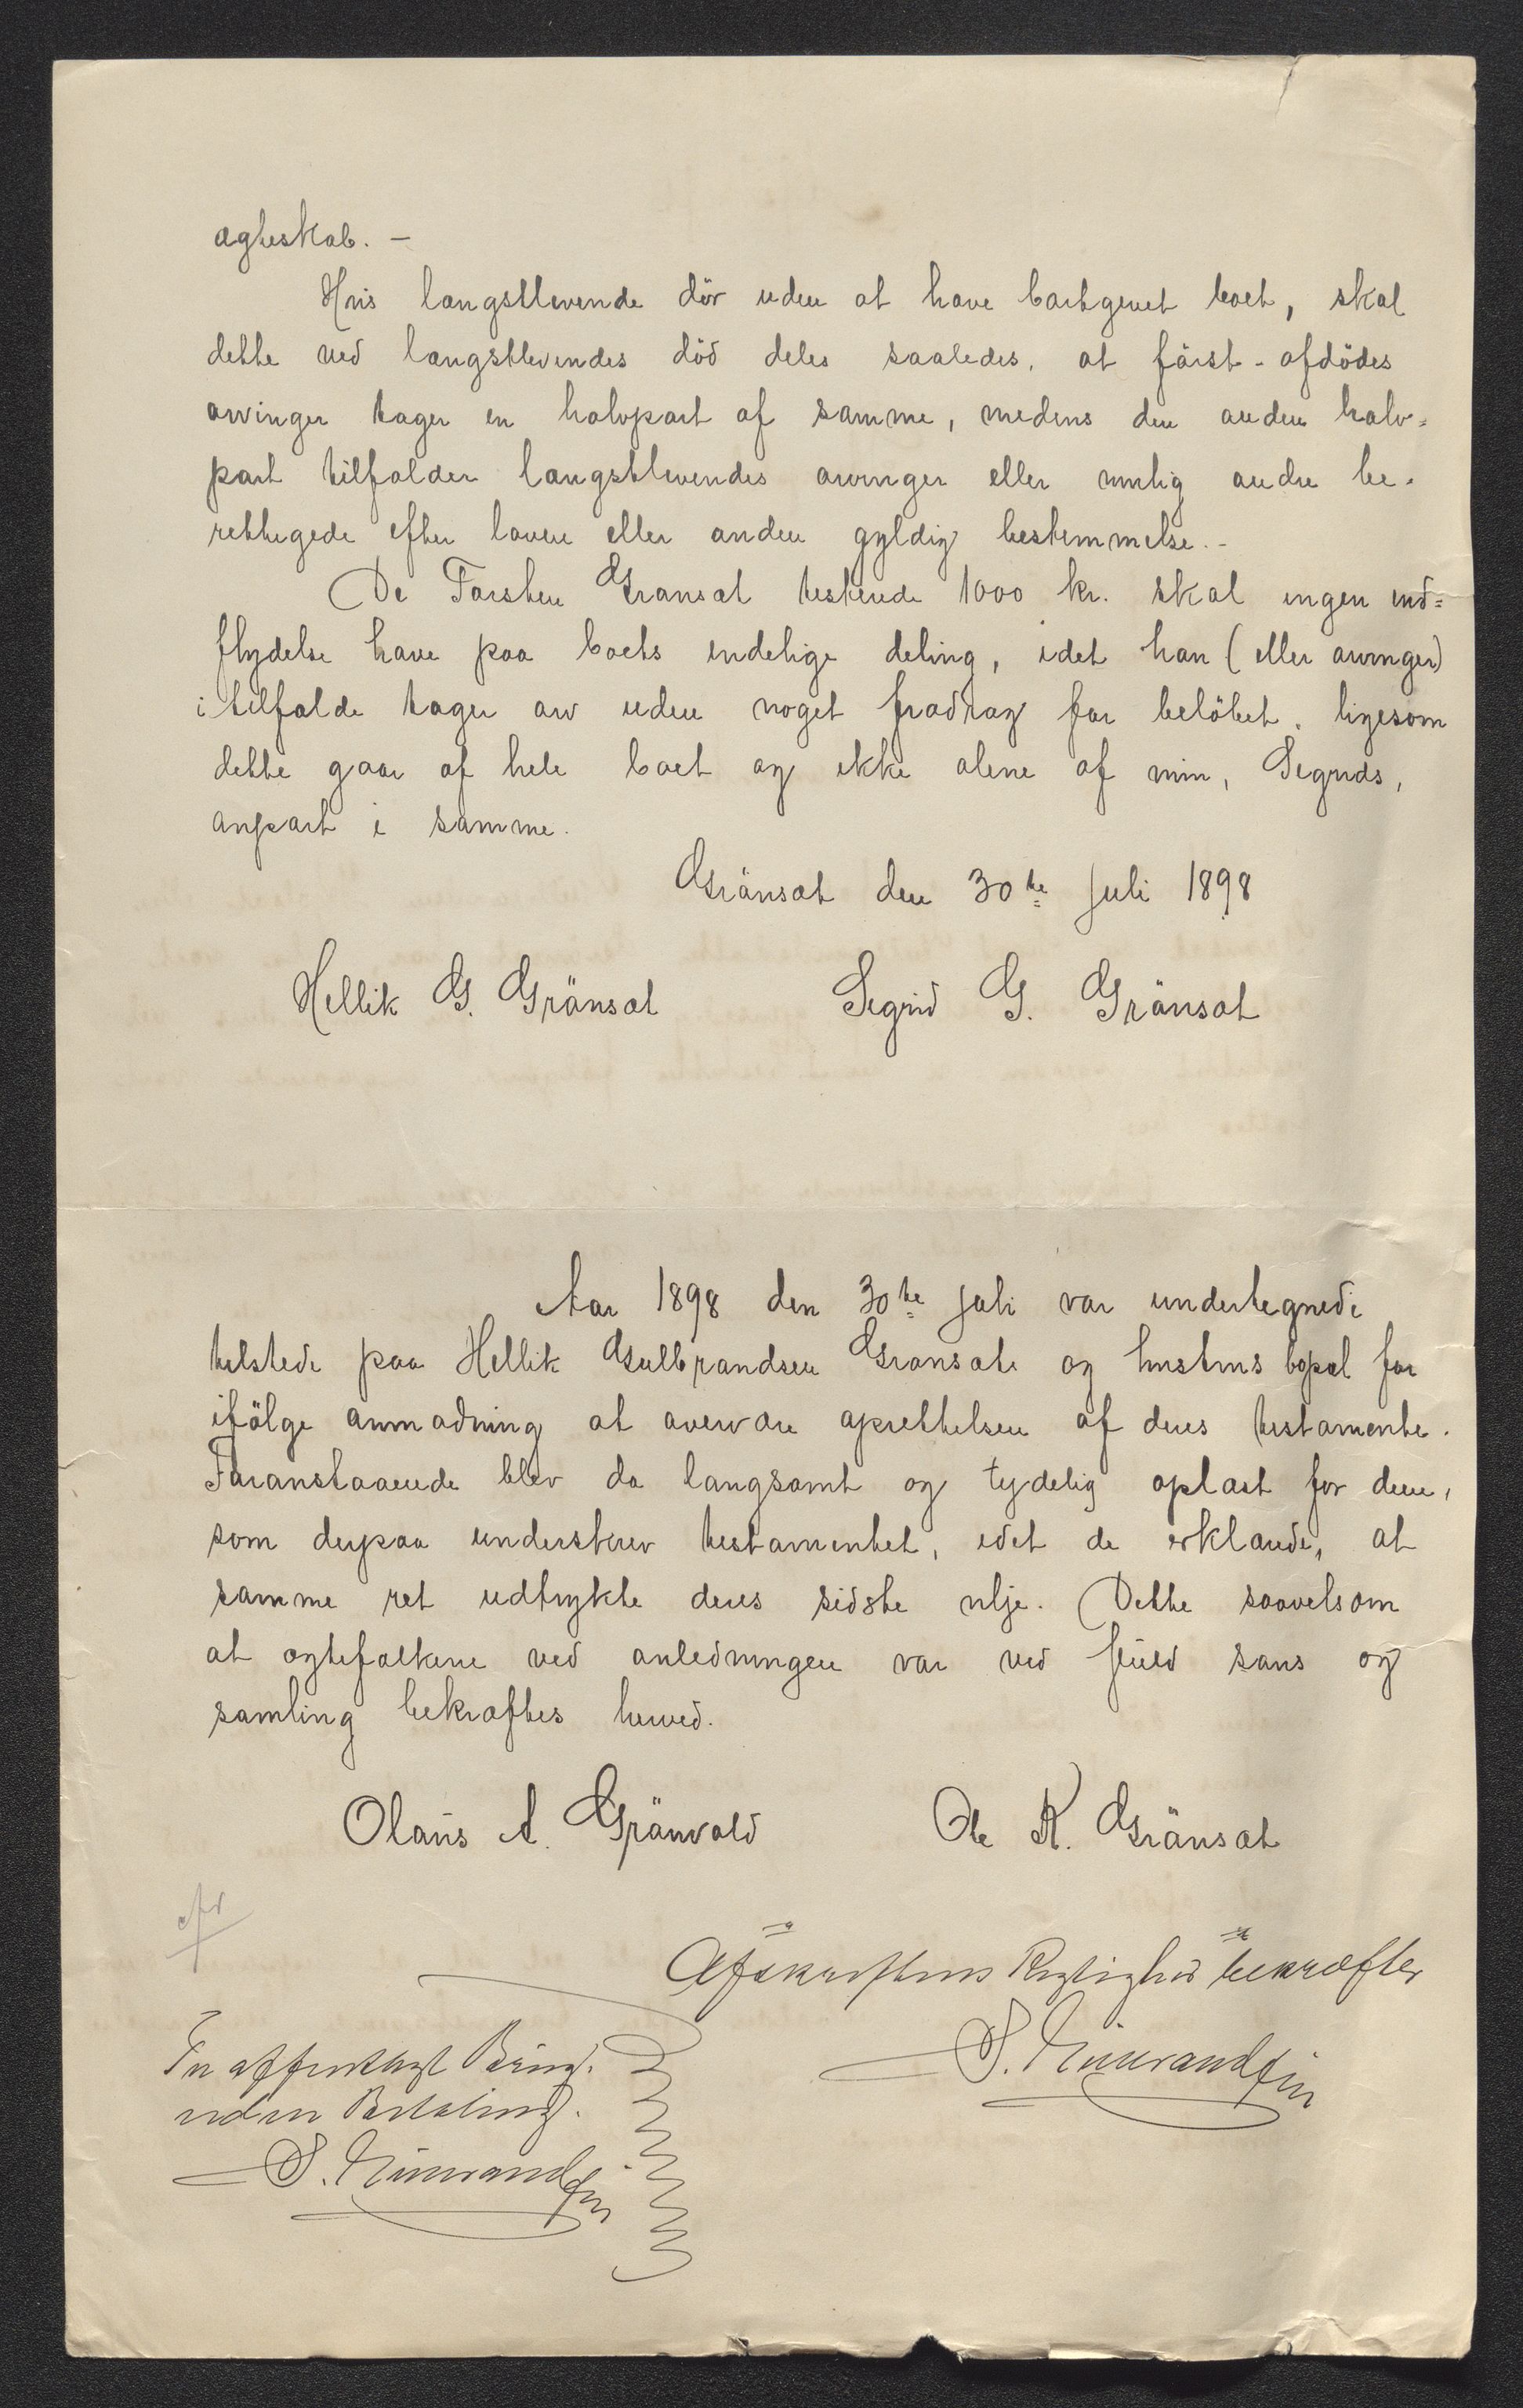 ægteskab. –
Hvis længstlevende dör uden at have bortgivet boet, skal
dette ved længstlevendes död deles saaledes, at först-afdödes
arvinger tager en halvpart af samme, medens den anden halv=
part tilfalder længstlevendes arvinger eller mulig andre be-
rettigede efter loven eller anden gyldig bestemmelse. –
De Torsten Grønsæt testerede 1000 kr. skal ingen ind=
flydelse have paa boets endelige deling, idet han (eller arvinger)
i tilfælde tager arv uden noget fradrag for belöbet, ligesom
dette gaar af hele boet og ikke alene af min, Sigrids,
anpart i samme.
Grönsæt den 30te Juli 1898
Hellik G. Grönsæt Sigrid G. Grönsæt
Aar 1898 den 30te juli var undertegnede
tilstede paa Hellik Gulbrandsen Grönsæts og hustrus bopæl for
ifölge anmodning at overvære oprettelsen af deres testamente.
Foranstaaende blev da langsomt og tydelig oplæst for dem,
som derpaa underskrev testamentet, idet de erklærede, at
samme ret udtrykte deres sidste vilje. Dette saavelsom
at ægtefolkene ved anledningen var ved fuld sans og
samling bekræftes herved.
Olaus A. Grönvold Ole K. Grönsæt
Afskriftens Rigtighed bekræfter
Til offentligt Brug.
uden Betaling.